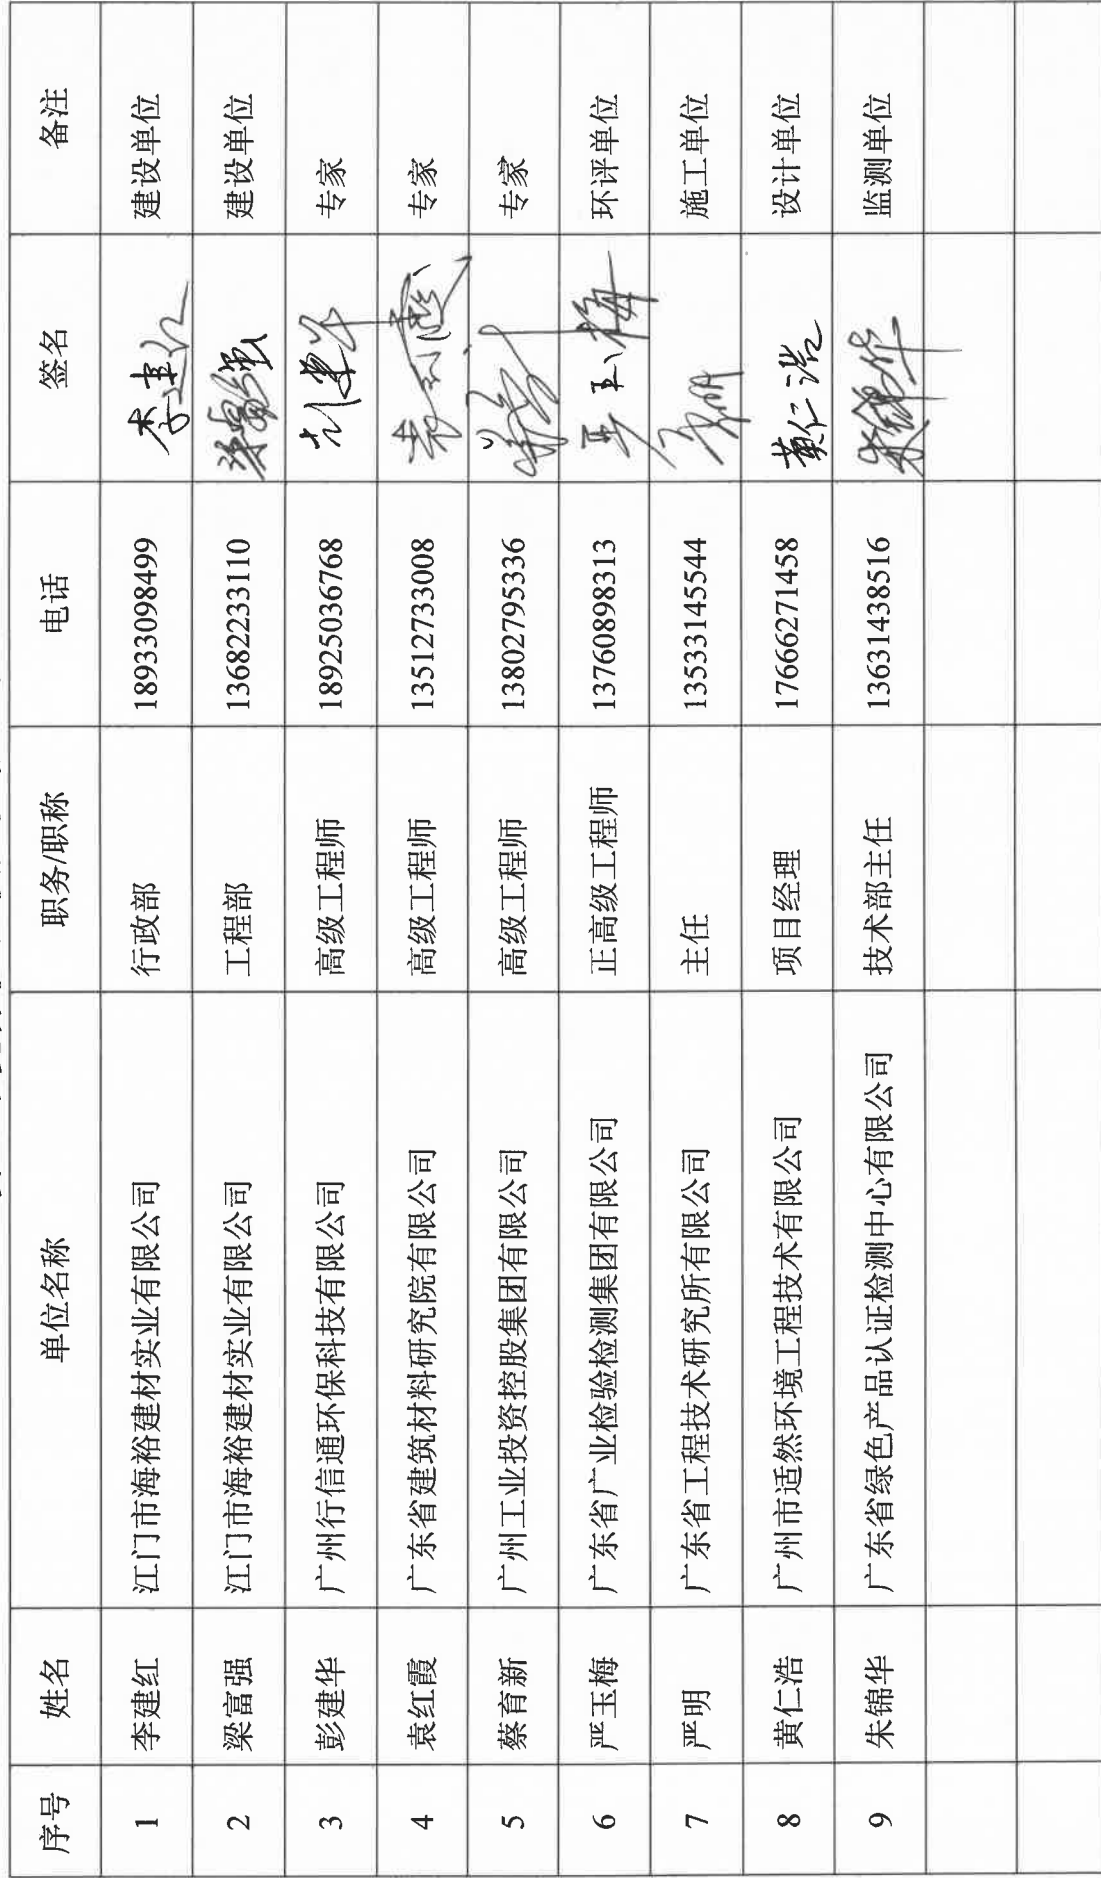 序号 姓名 单位名称 职务/职称 电话 签名 备注
1 李建红 江门市海裕建材实业有限公司 行政部 18933098499 李建红 建设单位
2 梁富强 江门市海裕建材实业有限公司 工程部 13682233110 梁富强 建设单位
3 彭建华 广州行信通环保科技有限公司 高级工程师 18925036768 专家
4 袁红霞 广东省建筑材料研究院有限公司 高级工程师 13512733008 袁红霞 专家
5 蔡育新 广州工业投资控股集团有限公司 高级工程师 13802795336 专家
6 严玉梅 广东省广业检验检测集团有限公司 正高级工程师 13760898313 严玉梅 环评单位
7 严明 广东省工程技术研究所有限公司 主任 13533145544 严明 施工单位
8 黄仁浩 广州市适然环境工程技术有限公司 项目经理 17666271458 黄仁浩 设计单位
9 朱锦华 广东省绿色产品认证检测中心有限公司 技术部主任 13631438516 朱锦华 监测单位